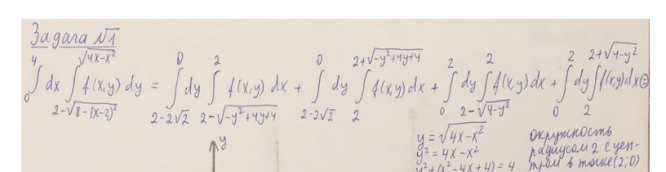 Задача №1
∫₀⁴ dx ∫_{2-√(8-(x-2)²)}^{√(4x-x²)} f(x,y) dy = ∫_{2-2√2}^{0} dy ∫_{2-√(-y²+4y+4)}^{2} f(x,y) dx + ∫_{2-2√2}^{0} dy ∫_{2}^{2+√(-y²+4y+4)} f(x,y) dx + ∫₀² dy ∫_{2-√(4-y²)}^{2} f(x,y) dx + ∫₀² dy ∫_{2}^{2+√(4-y²)} f(x,y) dx ⊜
y
y = √(4x-x²) окружность
y² = 4x-x² радиусом 2 с цен-
y²+(x²-4x+4) = 4 тром в точке (2;0)